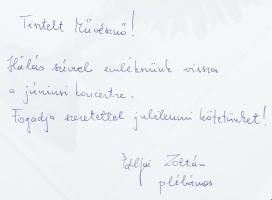 Tisztelt Művésznő!
Hálás szívvel emlékszünk vissza
a júniusi koncertre.
Fogadja szeretettel jubileumi kötetünket!
Zoltán
plébános